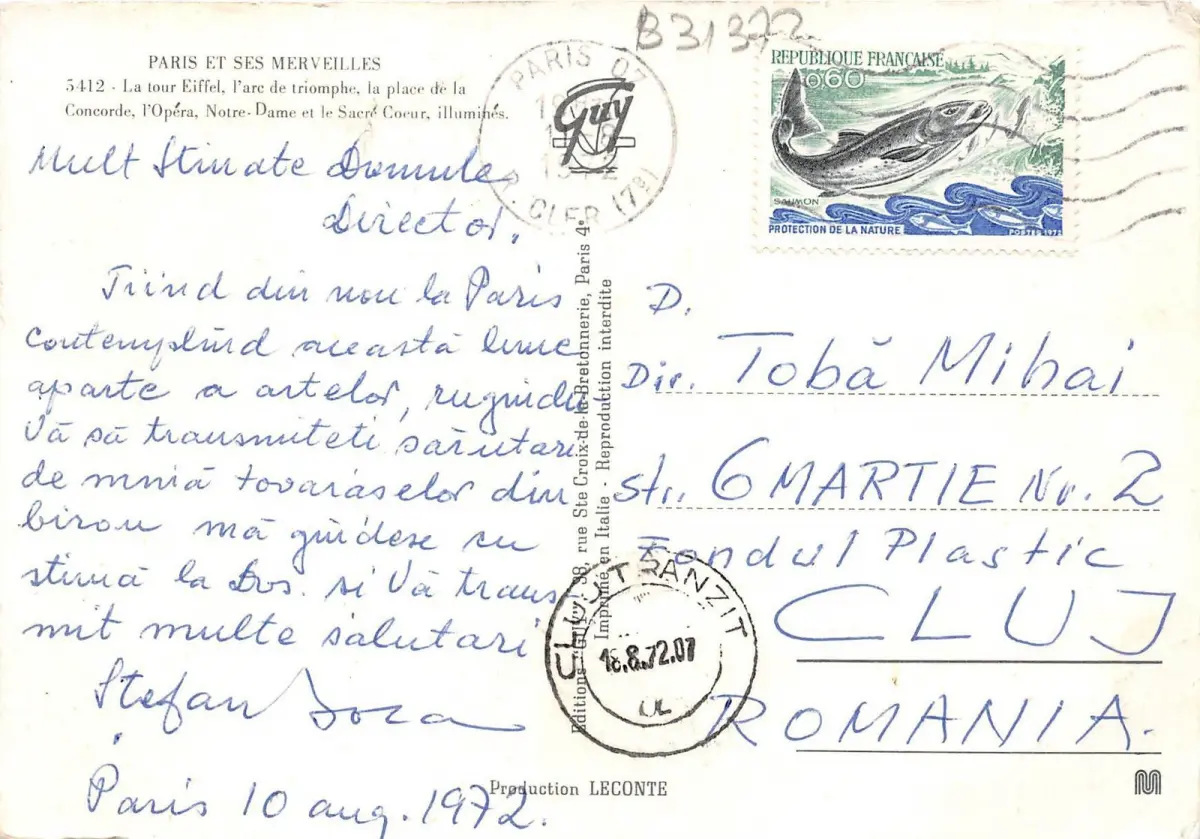 B31372
PARIS ET SES MERVEILLES
5412 - La tour Eiffel, l'arc de triomphe, la place de la
Concorde, l'Opéra, Notre-Dame et le Sacré Coeur, illuminés.
Mult Stimate Domnule
Director,
Tiind din nou la Paris
contemplînd această lume
aparte a artelor, rugîndu
Vă să transmiteti sărutari
de mînă tovaraselor din
birou mă gîndesc cu
stimă la Dvs. si Vă trans
mit multe salutari
Stefan
Paris 10 aug. 1972.
PARIS 07
R. CLER (7e)
1972
Guy
REPUBLIQUE FRANÇAISE
0,60
SAUMON
PROTECTION DE LA NATURE
POSTES 1972
Editions "GUY" 38, rue Ste Croix-de-la-Bretonnerie, Paris 4e
Imprimé en Italie - Reproduction interdite
D.
Dir. Tobă Mihai
str. 6 MARTIE Nr. 2
Fondul Plastic
CLUJ
ROMANIA.
CLUJ TRANZIT
18.8.72.07
Production LECONTE
M